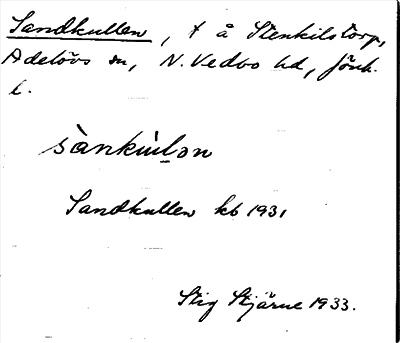 Sandkullen, t å Stenkilstorp,
Adelövs sn, N. Vedbo hd, Jönk.
l.
sànkul̥ən
Sandkullen kb 1931
Stig Stjärne 1933.